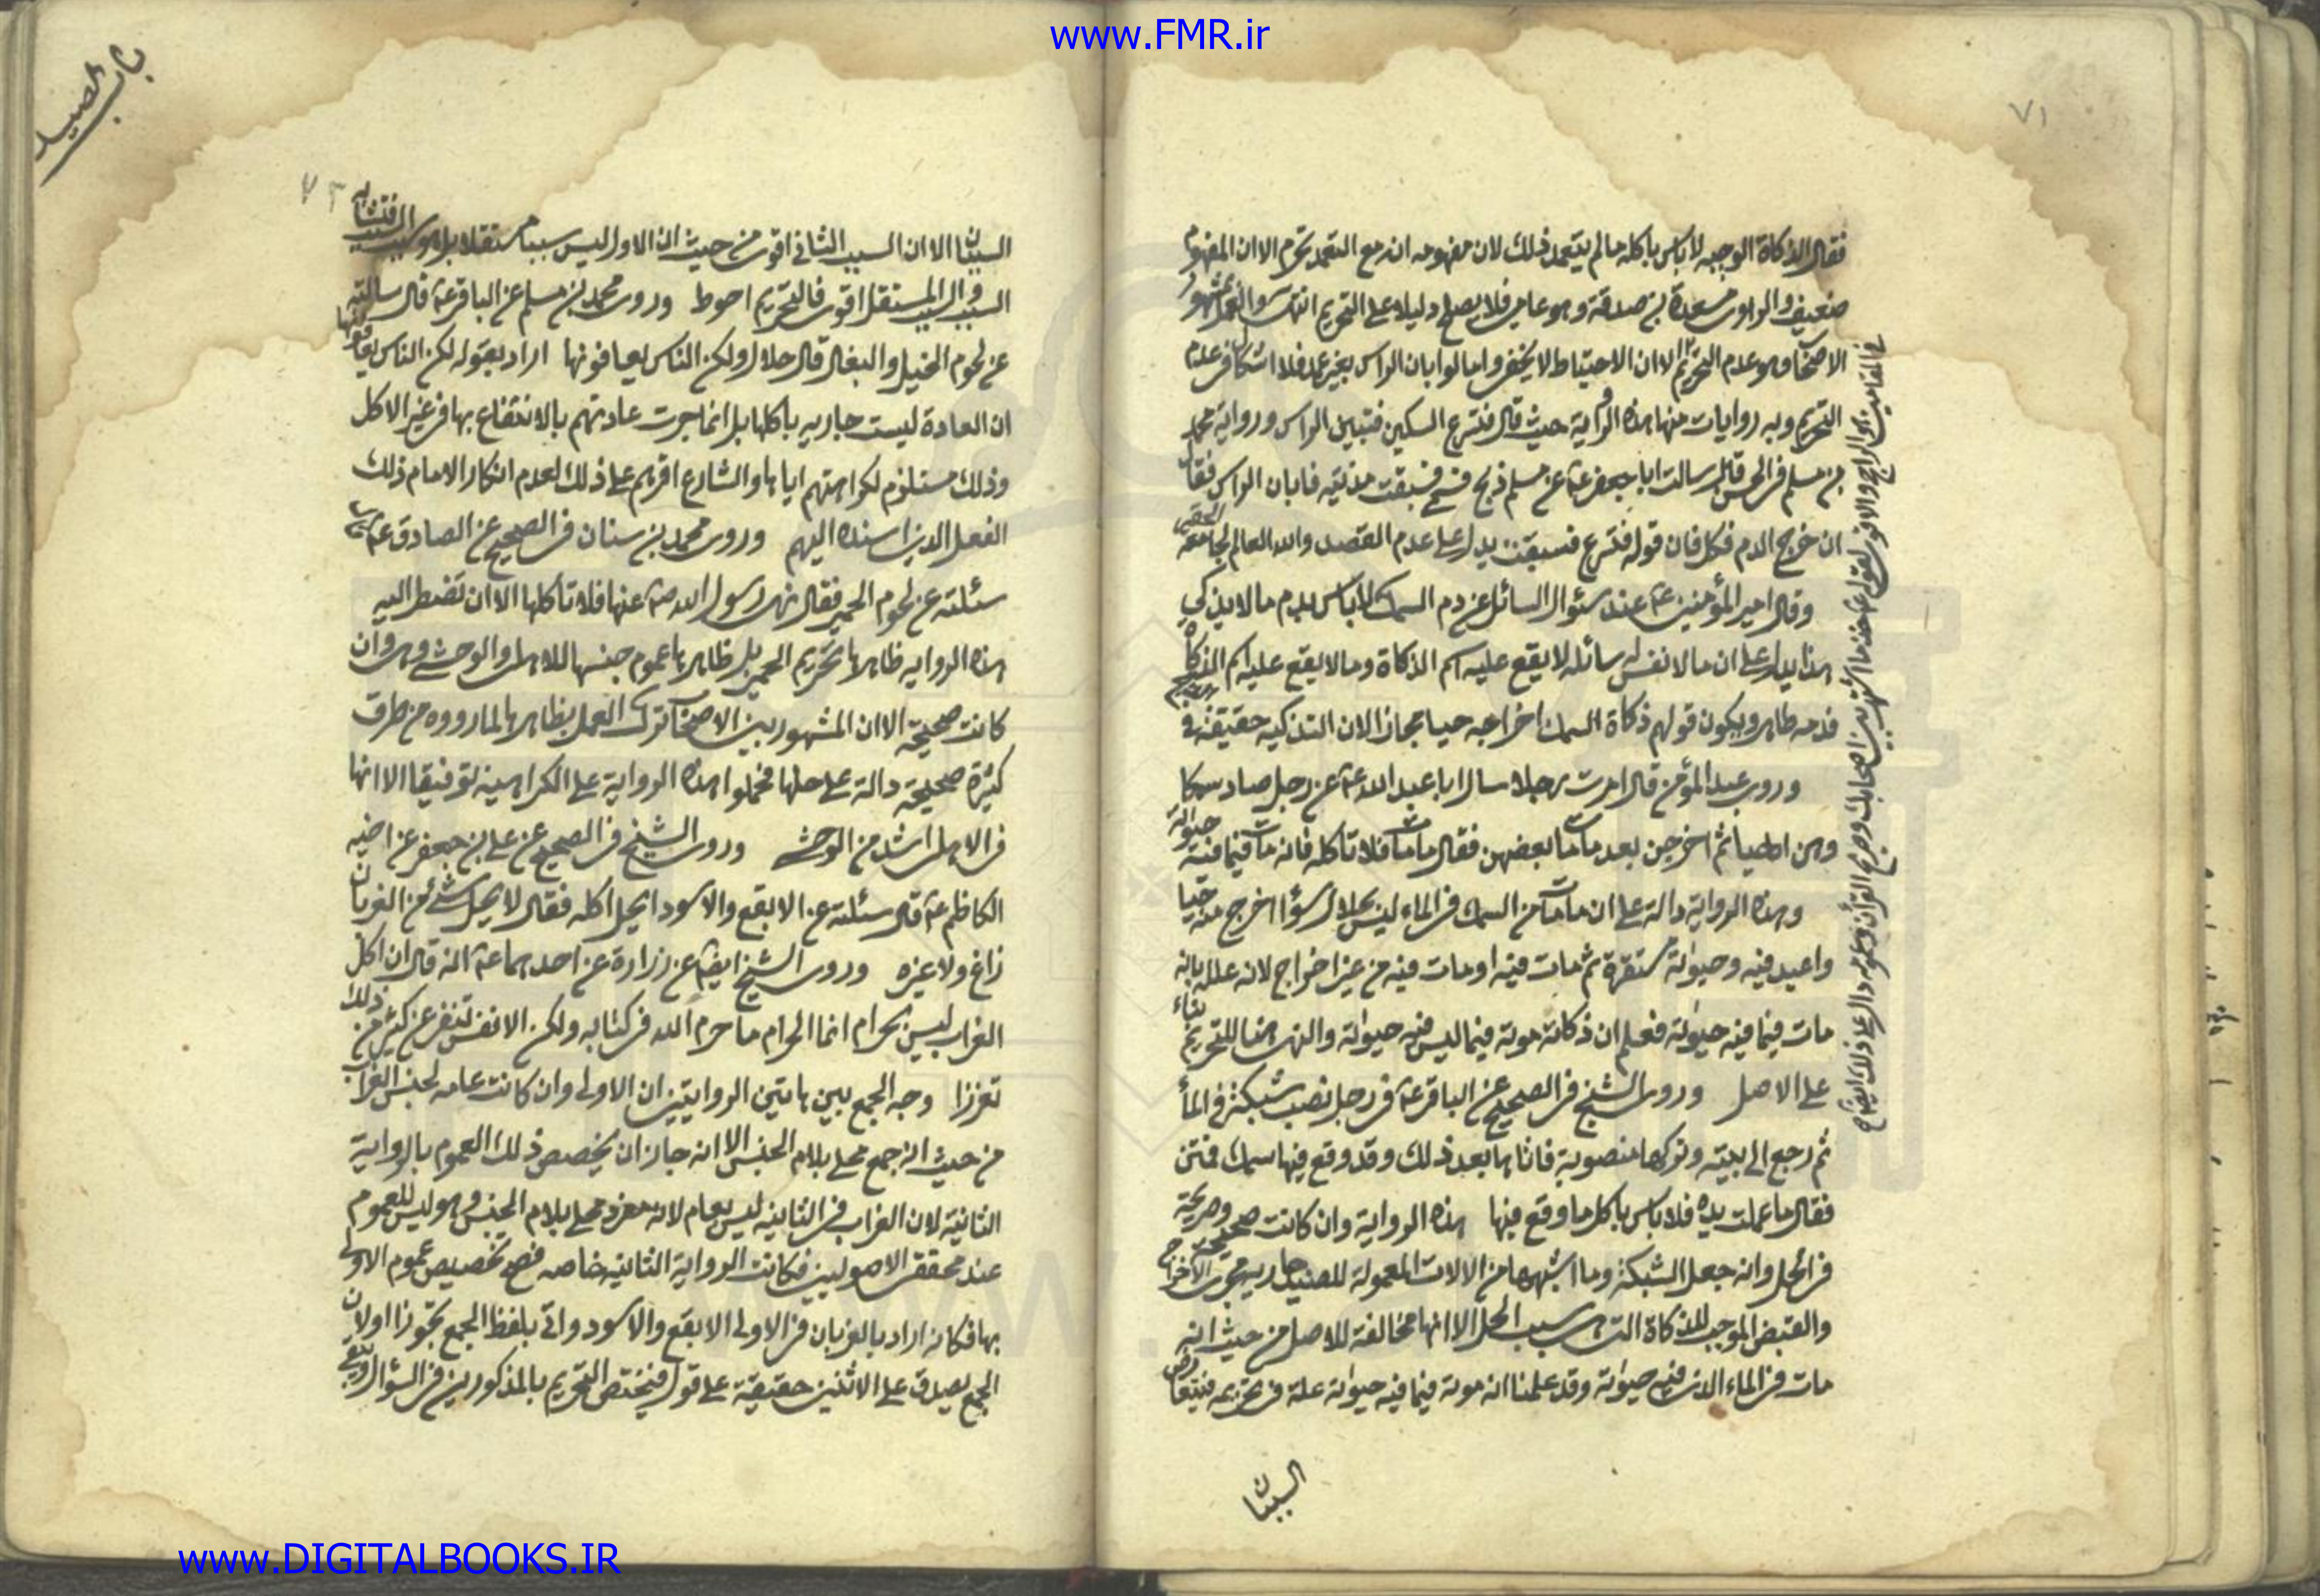 www.FMR.ir
٧١
فقال الذكاة الوجيه لا باس باكله ما لم يتعمد ذلك لان مفهومه ان مع التعمد تحرم الا ان المفهوم
ضعيف والراوى مسعدة بن صدقة وهو عامى فلا يصلح دليلا على التحريم انتهى والمشهور
الاصحاب وهو عدم التحريم الا ان الاحتياط لا يخفى واما لو ابان الراس بغير عمد فلا اشكال فى عدم
التحريم وبه روايات منها هذه الرواية حيث قال فتسرع السكين فتبين الراس ورواية محمد
بن مسلم فى الحسن قال سالت ابا جعفر ع عن مسلم ذبح فسبقت مديته فابان الراس فقال
ان خرج الدم فكل فان قوله فتسرع فسبقت يدل على عدم القصد والله العالم
وقال امير المؤمنين ع عند سئوال السائل عن دم السمك لا باس بدم ما لا يذكى
هذا يدل على ان ما لا نفس له سائله لا يقع عليه اسم الذكاة وما لا يقع عليه اسم الذكاة
فدمه طاهر ويكون قولهم ذكاة السمك اخراجه حيا مجازا لان التذكيه حقيقة فى
وروى عبد المؤمن قال امرت رجلا سال ابا عبد الله ع عن رجل صاد سمكا
وهن احياء ثم اخرجن بعد ما مات بعضهن فقال ما مات فلا تاكله فانه مات فيما فيه حيوته
وهذه الرواية دالة على ان ما مات من السمك فى الماء ليس بحلال سواء اخرج منه حيا
واعيد فيه وحيوته مستقرة ثم مات فيه او مات فيه من غير اخراج لانه علله بانه
مات فيما فيه حيوته فعلم ان ذكاته موته فيما ليس فيه حيوته والنهى هنا للتحريم بناء
على الاصل وروى الشيخ فى الصحيح عن الباقر ع فى رجل نصب شبكة فى الماء
ثم رجع الى بيته وتركها منصوبة فاتاها بعد ذلك وقد وقع فيها سمك فمتن
فقال ما عملت يده فلا باس باكل ما وقع فيها هذه الرواية وان كانت صحيحة وصريحة
فى الحل وانه جعل الشبكة وما اشبهها من الالات المعمولة للصيد جاريه مجرى الاخراج
والقبض الموجب للذكاة التى هى سبب الحل الا انها مخالفة للاصل من حيث انه
مات فى الماء الذى فيه حيوته وقد علمنا انه موته فيما فيه حيوته علة فى تحريمه فتعارض
السببان
باب الصيد
٧٢
السببان الا ان السبب الثانى اقوى من حيث ان الاول ليس سببا مستقلا بل هو
السبب والسبب المستقل اقوى فالتحريم احوط وروى محمد بن مسلم عن الباقر ع قال سالته
عن لحوم الخيل والبغال قال حلال ولكن الناس يعافونها اراد بقوله لكن الناس يعافونها
ان العادة ليست جاريه باكلها بل انما جرت عادتهم بالانتفاع بها فى غير الاكل
وذلك مستلزم لكراهتهم اياها والشارع اقرهم على ذلك لعدم انكار الامام ذلك
الفعل الذى اسنده اليهم وروى محمد بن سنان فى الصحيح عن الصادق ع
سئلته عن لحوم الحمير فقال نهى رسول الله ص عنها فلا تاكلها الا ان تضطر اليه
هذه الروايه ظاهرها تحريم الحمير بل ظاهرها عموم جنسها للاهلى والوحشى وهى وان
كانت صحيحة الا ان المشهور بين الاصحاب ترك العمل بظاهرها لما رووه من طرق
كثيرة صحيحة دالة على حلها فحملوا هذه الرواية على الكراهيه توفيقا الا انها
فى الاهلى اشد من الوحشى وروى الشيخ فى الصحيح عن على بن جعفر عن اخيه
الكاظم ع قال سئلته عن الابقع والاسود ايحل اكله فقال لا يحل شئ من الغربان
زاغ ولا غيره وروى الشيخ ايضا عن زرارة عن احدهما ع انه قال ان اكل
الغراب ليس بحرام انما الحرام ما حرم الله فى كتابه ولكن الانفس تتنفر عن كثير من ذلك
تعززا وجه الجمع بين هاتين الروايتين ان الاولى وان كانت عامه لجنس الغراب
من حيث انه جمع محلى بلام الجنس الا انه جاز ان يخصص ذلك العموم بالرواية
الثانية لان الغراب فى الثانية ليس بعام لانه مفرد محلى بلام الجنس وهو ليس للعموم
عند محققى الاصوليين فكانت الرواية الثانية خاصه فصح تخصيص عموم الاولى
بها فكانه اراد بالغربان فى الاولى الابقع والاسود واتى بلفظ الجمع تجوزا او لان
الجمع يصدق على الاثنين حقيقة على قول فيختص التحريم بالمذكورين فى السؤال
www.DIGITALBOOKS.IR